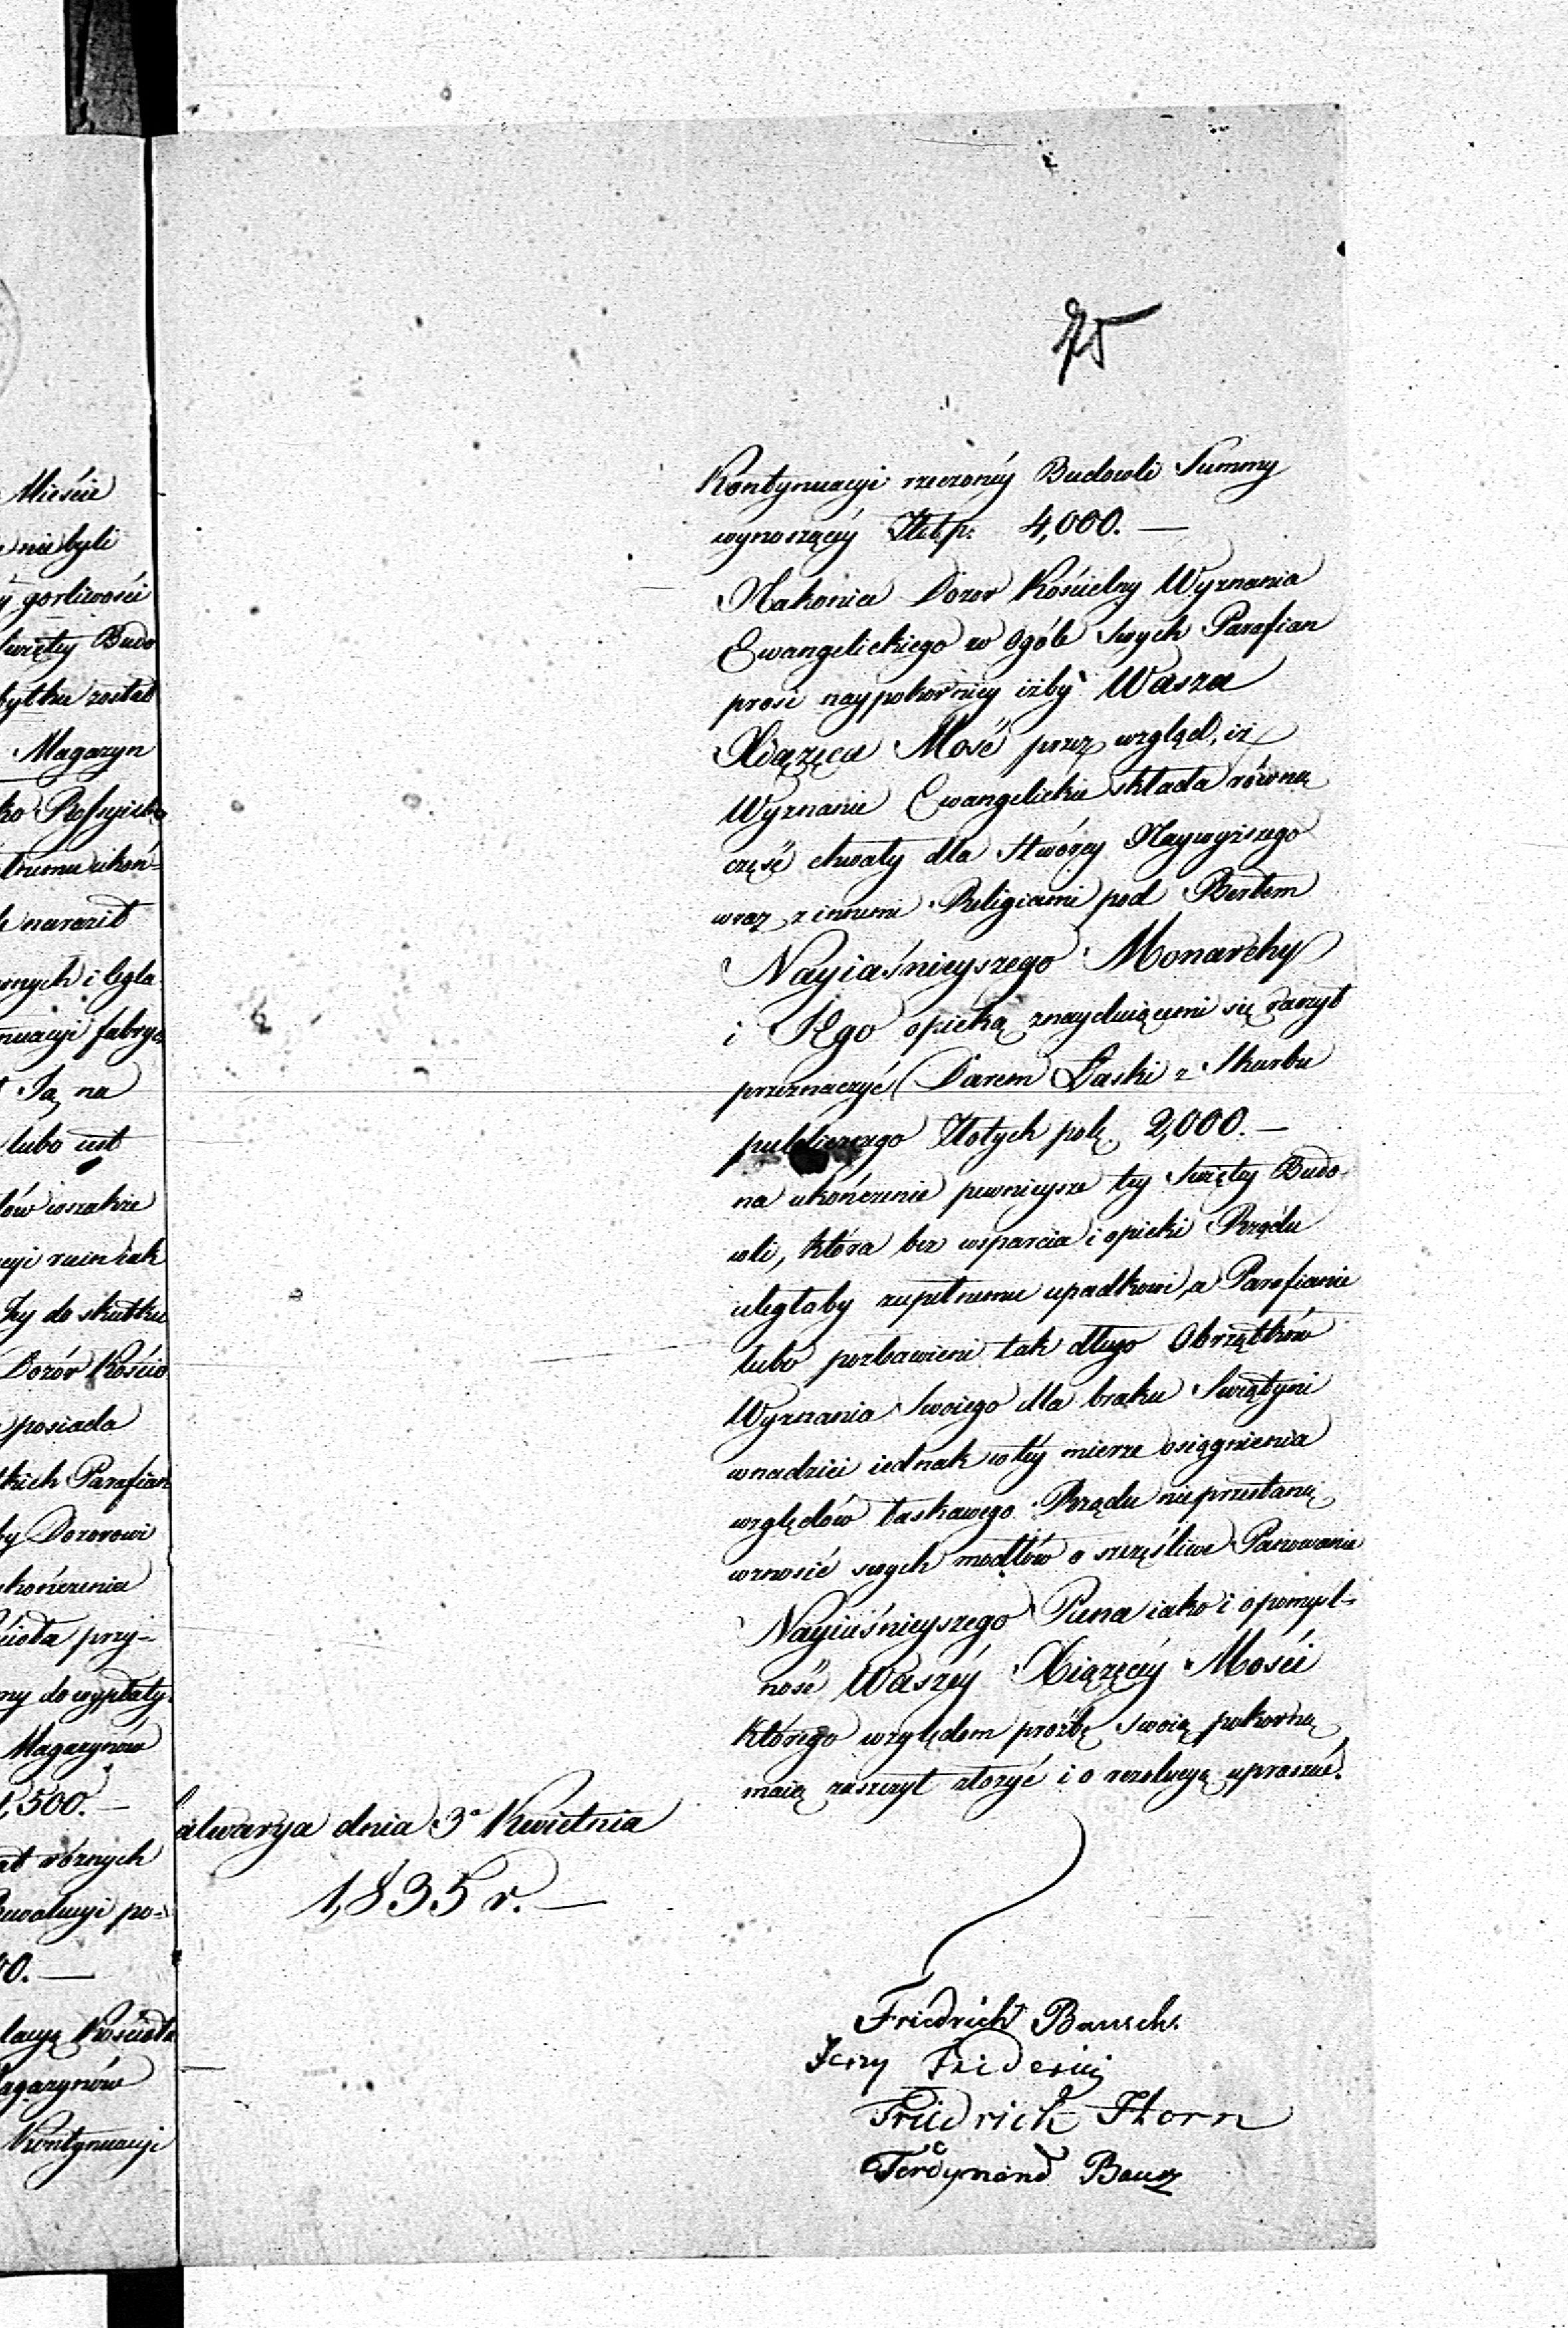 Mieście
niebyli
gorliwości
Swiętey Budo
bytku został
Magazyn
ko Rossyiską
naraził
rnych i legla
nuacyi fabryc
Ią na
lubo iest
dów wszakże
cyi ruin iak
Iey do skutku
Dozór Kościo
posiada
tkich Parafian
by Dozorowi
ukończenia
ścioła przy-
ny do wypłaty
Magazynów
1,500.—
at różnych
Rewolucyi po-
00.—
lacyą Kościoła
Magazynów
Kontynuacyi
75
Kontynuacyi rzeczonéy Budowli Summy
wynoszącéy Złotp: 4,000.—
Nakoniec Dozor Kościelny Wyznania
Ewangelickiego w Ogóle swych Parafian
prosi naypokorniey iżby Wasza
Xiążęca Mość przez wzgląd, iż
Wyznanie Ewangelickie składa równą
cześć chwały dla Stwórcy Naywyższego
wraz z innemi Religiami pod Berłem
Nayiaśnieyszego Monarchy
i Jego opieką znayduiącemi się raczył
przeznaczyć Darem Łaski z Skarbu
publicznego Złotych pol. 2,000.—
na ukończenie pewnieysze tey Swiętey Budo-
wli, która bez wsparcia i opieki Rządu
uległaby zupełnemu upadkowi, a Parafianie
lubo pozbawieni tak długo Obrządków
Wyznania Swoiego dla braku Swiątyni
wnadziei iednak w téy mierze osiągnienia
względów łaskawego Rządu nieprzestaną
wznosić swych modłów o szczęśliwe Panowanie
Nayiaśnieyszego Pana iako i o pomyśl-
ność Waszéy Xiążęcéy Mości
którego względem prośbę swoię pokorną
maią zaszczyt złożyć i o rezolucyą upraszać.
alwarya dnia 3º Kwietnia
1,835 r.—
Friedrich Bausch.
Jerzy Friderici
Friedrich Horn
Ferdynand Bausz